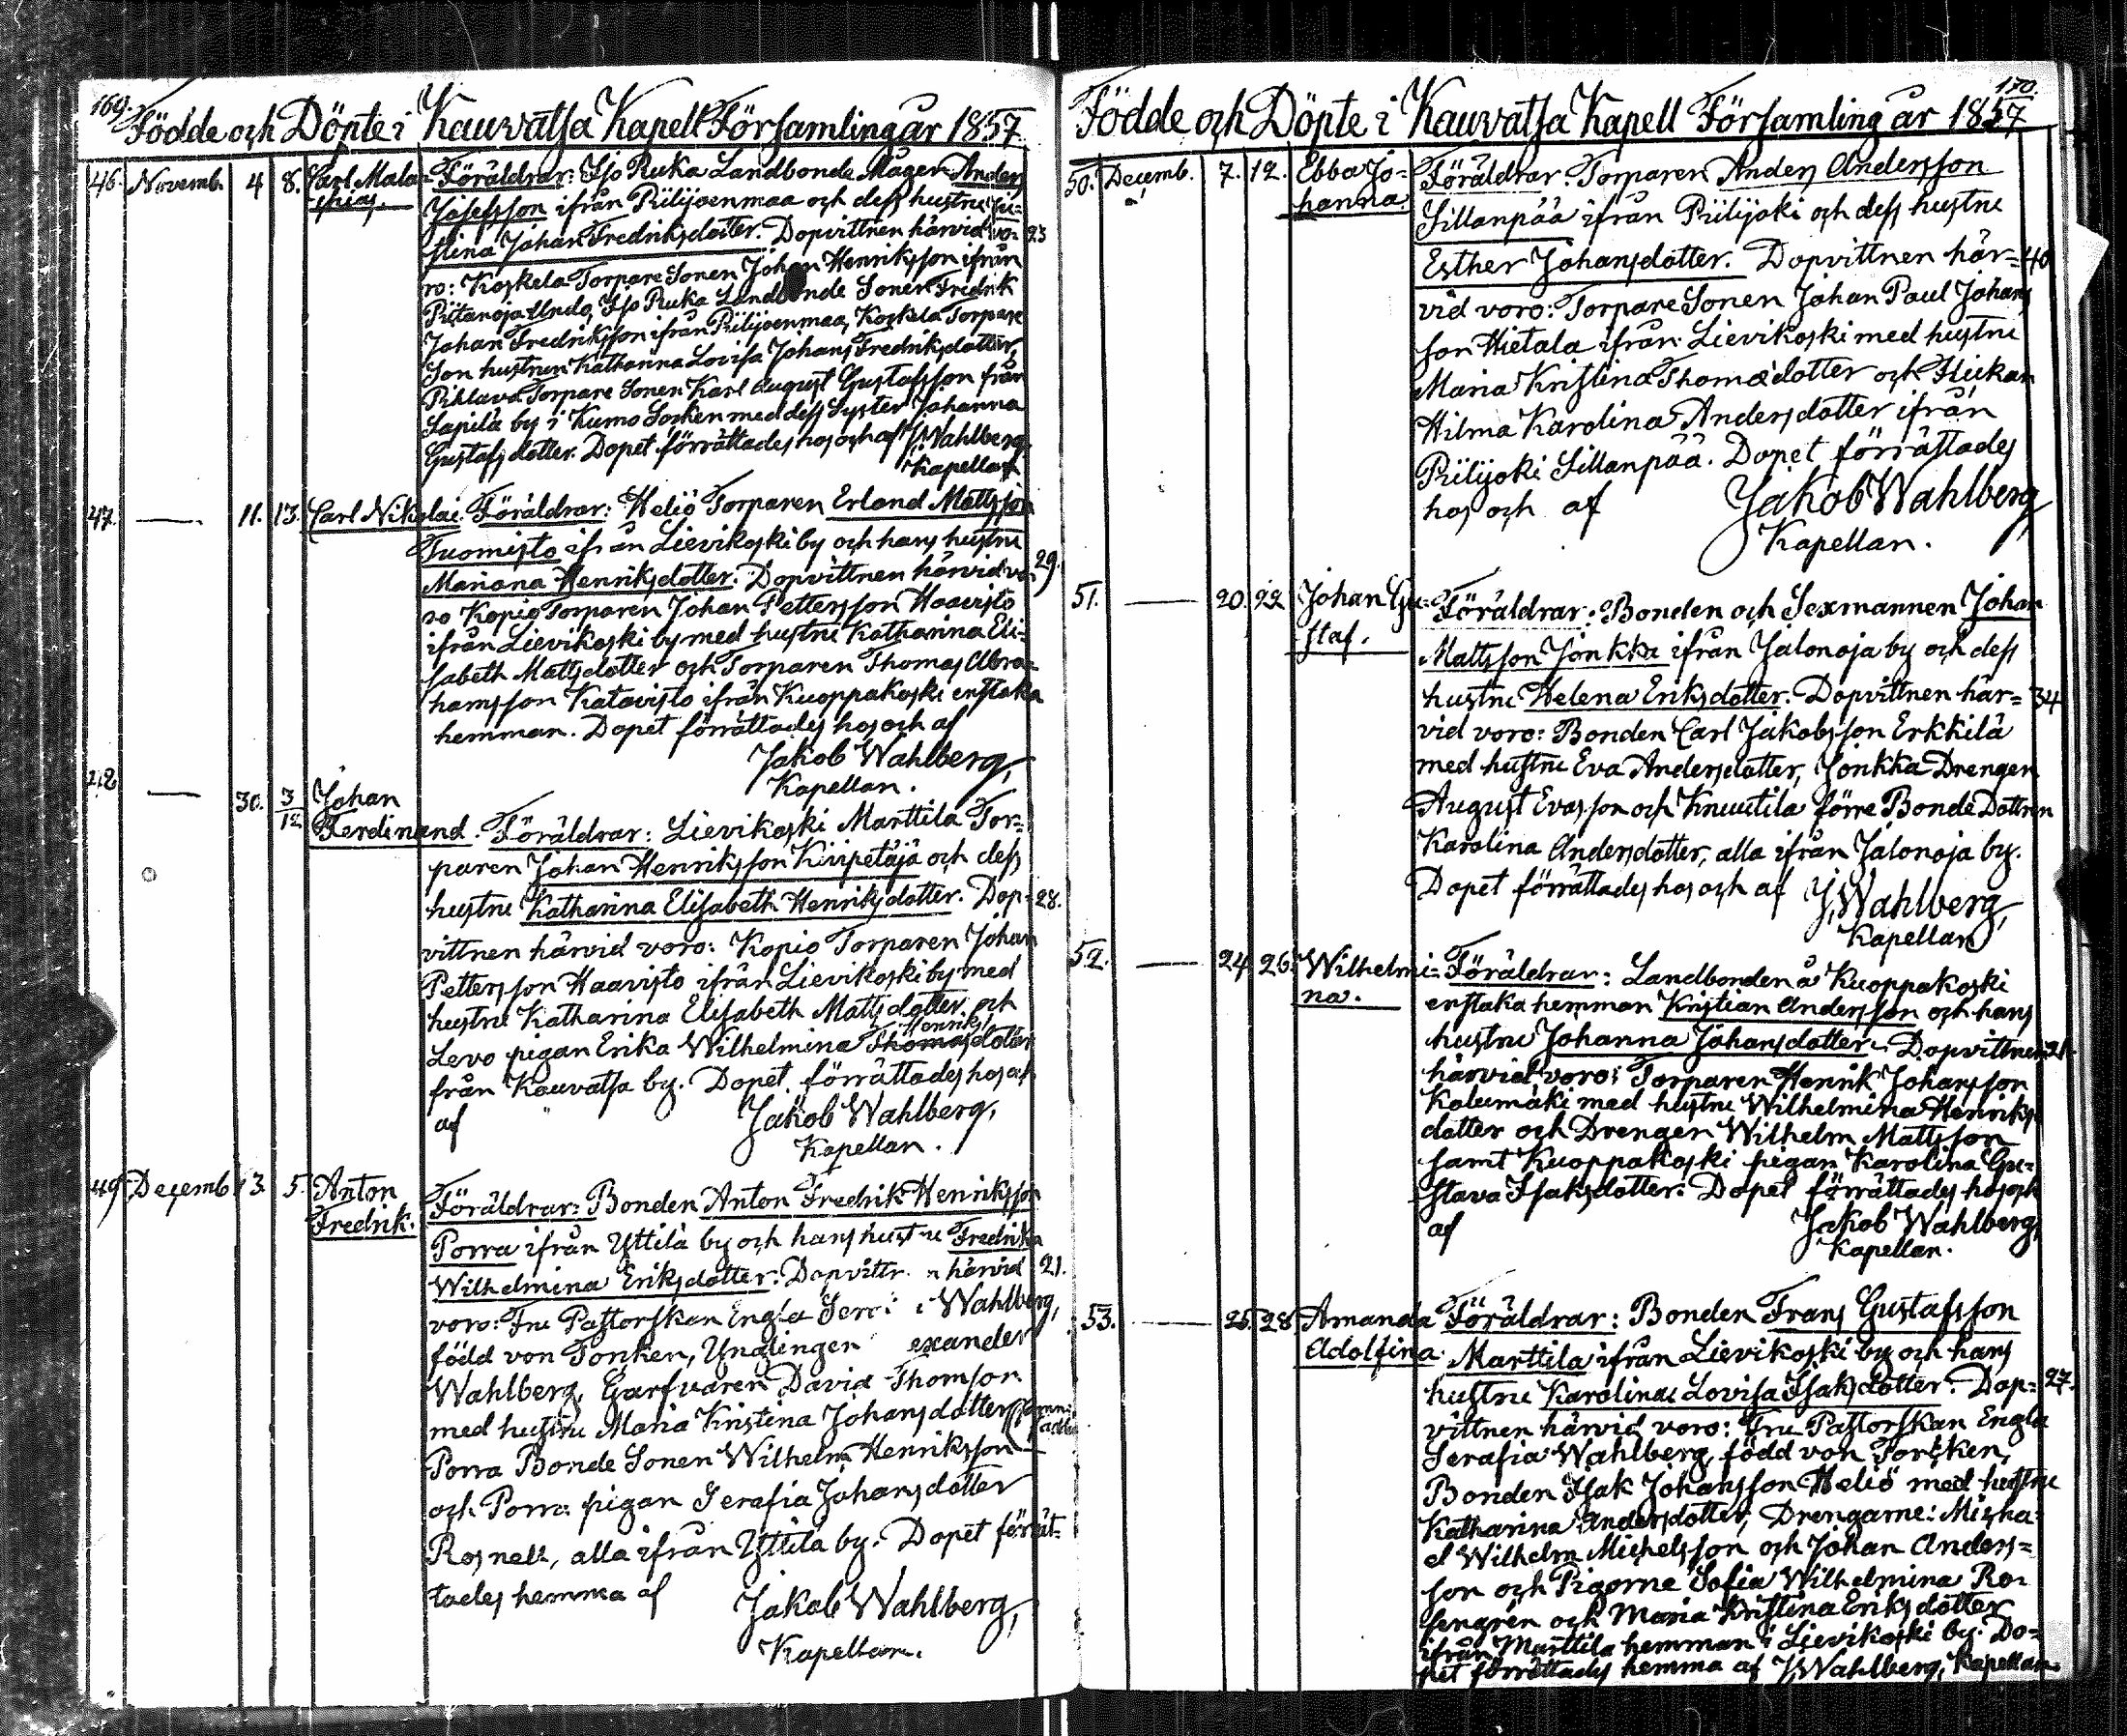 169.
Födde och Döpte i Kauvatsa Kapell Församling år 1857.
46. Novemb. 4 8. Carl Mala- Föräldrar: Iso Ruka Landbonde Mågen Anders
chias. Josefsson ifrån Piilijoenmaa och dess hustru Ju-
stina Johan Fredriksdotter. Dopvittnen härvid vo- 23
ro: Koskela Torpare Sonen Johan Henriksson ifrån
Piitanoja Undo, Iso Ruka Landbonde Sonen Fredrik
Johan Fredriksson ifrån Piilijoenmaa, Koskela Torpare
Son hustrun Katharina Lovisa Johans Fredriksdotter,
Pihlava Torpare Sonen Karl August Gustafsson från
Sapila by i Kumo Socken med dess Syster Johanna
Gustafsdotter. Dopet förrättades hos och af J. Wahlberg,
Kapellan.
47. — 11. 13. Carl Nikolai. Föräldrar: Heliö Torparen Erland Mattsson
Tuomisto ifrån Lievikoski by och hans hustru
Mariana Henriksdotter. Dopvittnen härvid vo- 29.
ro Kopio Torparen Johan Pettersson Haavisto
ifrån Lievikoski by med hustru Katharina Eli-
sabeth Mattsdotter och Torparen Thomas Abra-
hamsson Katavisto ifrån Kuoppakoski enstaka
hemman. Dopet förrättades hos och af
Jakob Wahlberg,
Kapellan.
48 — 30. 3/12 Johan
Ferdinand. Föräldrar: Lievikoski Marttila Tor-
paren Johan Henriksson Kiipetäjä och dess
hustru Katharina Elisabeth Henriksdotter. Dop- 28.
vittnen härvid voro: Kopio Torparen Johan
Pettersson Haavisto ifrån Lievikoski by med
hustru Katharina Elisabeth Mattsdotter och
Henriks
Levo pigan Erika Wilhelmina Thomasdotter
från Kauvatsa by. Dopet förrättades hos och
af Jakob Wahlberg,
Kapellan.
49. Decemb. 3. 5. Anton Föräldrar: Bonden Anton Fredrik Henriksson
Fredrik. Porra ifrån Yttilä by och hans hustru Fredrika
Wilhelmina Eriksdotter. Dopvittn härvid 21.
voro: Fru Pastorskan Engla Wahlberg,
född von Torcken, Ynglingen exander
Wahlberg, Garfvaren David Thomson
med hustru Maria Kristina Johansdotter
Porra Bonde Sonen Wilhelm Henriksson
och Porra pigan Serafia Johansdotter
Rosnell, alla ifrån Yttilä by. Dopet förrät-
tades hemma af Jakob Wahlberg,
Kapellan.
170.
Födde och Döpte i Kauvatsa Kapell Församling år 1857
50. Decemb. 7. 12. Ebba Jo- Föräldrar: Torparen Anders Andersson
hanna. Sillanpää ifrån Piilijoki och dess hustru
Esther Johansdotter. Dopvittnen här- 40
vid voro: Torpare Sonen Johan Paul Johans
son Hietala ifrån Lievikoski med hustru
Maria Kristina Thomædotter och Flickan
Hilma Karolina Andersdotter ifrån
Piilijoki Sillanpää. Dopet förrättades
hos och af Jakob Wahlberg,
Kapellan.
51. — 20. 22 Johan Gu- Föräldrar: Bonden och Sexmannen Johan
staf. Mattsson Jonkka ifrån Jalonoja by och dess
hustru Helena Eriksdotter. Dopvittnen här- 34
vid voro: Bonden Carl Jakobsson Erkkilä
med hustru Eva Andersdotter, Jonkka Drengen
August Evasson och Knuutila förre Bonde Dottren
Karolina Andersdotter, alla ifrån Jalonoja by.
Dopet förrättades hos och af J. Wahlberg,
Kapellan
52. — 24 26. Wilhelmi- Föräldrar: Landbonden å Kuoppakoski
na. enstaka hemman Kristian Andersson och hans
hustru Johanna Johansdotter. Dopvittnen 21.
härvid voro: Torparen Henrik Johansson
Kalumäki med hustru Wilhelmina Henriks
dotter och Drengen Wilhelm Mattsson
samt Kuoppakoski pigan Karolina Gu-
stava Isaksdotter. Dopet förrättades hos och
af Jakob Wahlberg,
Kapellan.
53. — 25. 28 Amanda Föräldrar: Bonden Frans Gustafsson
Adolfina. Marttila ifrån Lievikoski by och hans
hustru Karolina Lovisa Isaksdotter. Dop- 27.
vittnen härvid voro: Fru Pastorskan Engla
Serafia Wahlberg, född von Torcken,
Bonden Isak Johansson Heliö med hustru
Katharina Andersdotter, Drengarne: Micha-
el Wilhelm Michelsson och Johan Anders-
son och Pigorne Sofia Wilhelmina Ro-
sengrén och Maria Kristina Eriksdotter
ifrån Marttila hemman i Lievikoski by. Do-
pet förrättades hemma af J. Wahlberg, Kapellan.